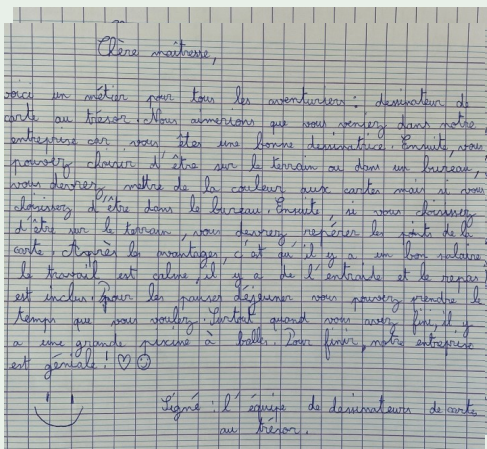 Chère maîtresse,
voici un métier pour tous les aventuriers : dessinateur de
carte au trésor. Nous aimerions que vous veniez dans notre
entreprise car vous êtes une bonne dessinatrice. Ensuite, vous
pouvez choisir d'être sur le terrain ou dans un bureau,
vous devrez mettre de la couleur aux cartes mais si vous
choisissez d'être dans le bureau. Ensuite, si vous choisissez
d'être sur le terrain, vous devrez repérer les points de la
carte. Après les avantages, c'est qu'il y a un bon salaire,
le travail est calme, il y a de l'entraide et le repas
est inclus. Pour les pauses déjeuner vous pouvez prendre le
temps que vous voulez. Surtout quand vous avez fini, il y
a une grande piscine à balles. Pour finir, notre entreprise
est géniale ! ♡☺
Signé : l'équipe de dessinateurs de carte
au trésor.